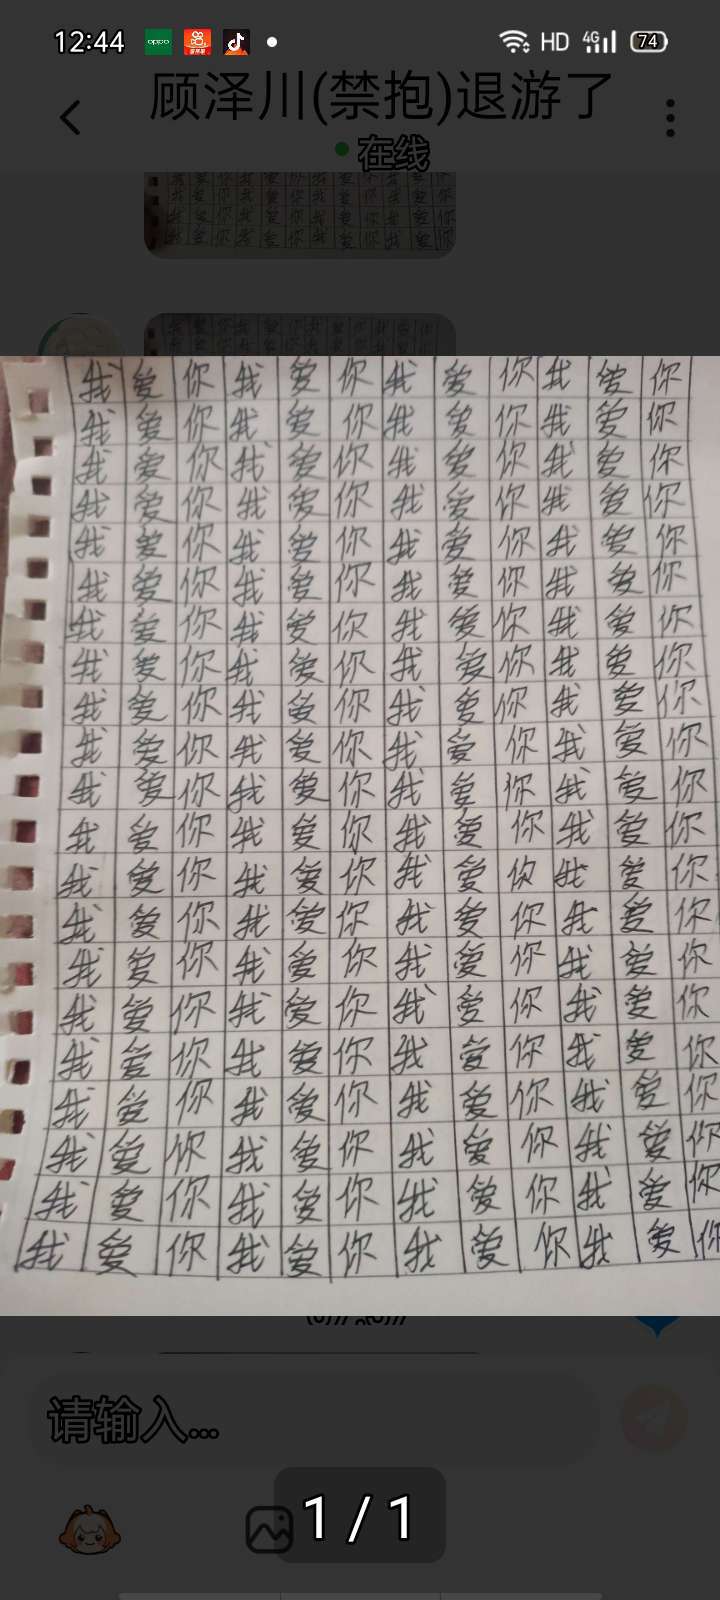 12:44 oppo HD 4G 74
顾泽川(禁抱)退游了
在线
我爱你我爱你我爱你我爱你
我爱你我爱你我爱你我爱你
我爱你我爱你我爱你我爱你
我爱你我爱你我爱你我爱你
我爱你我爱你我爱你我爱你
我爱你我爱你我爱你我爱你
我爱你我爱你我爱你我爱你
我爱你我爱你我爱你我爱你
我爱你我爱你我爱你我爱你
我爱你我爱你我爱你我爱你
我爱你我爱你我爱你我爱你
我爱你我爱你我爱你我爱你
我爱你我爱你我爱你我爱你
我爱你我爱你我爱你我爱你
我爱你我爱你我爱你我爱你
我爱你我爱你我爱你我爱你
我爱你我爱你我爱你我爱你
我爱你我爱你我爱你我爱你
我爱你我爱你我爱你我爱你
我爱你我爱你我爱你我爱你
我爱你我爱你我爱你我爱你
请输入...
1 / 1